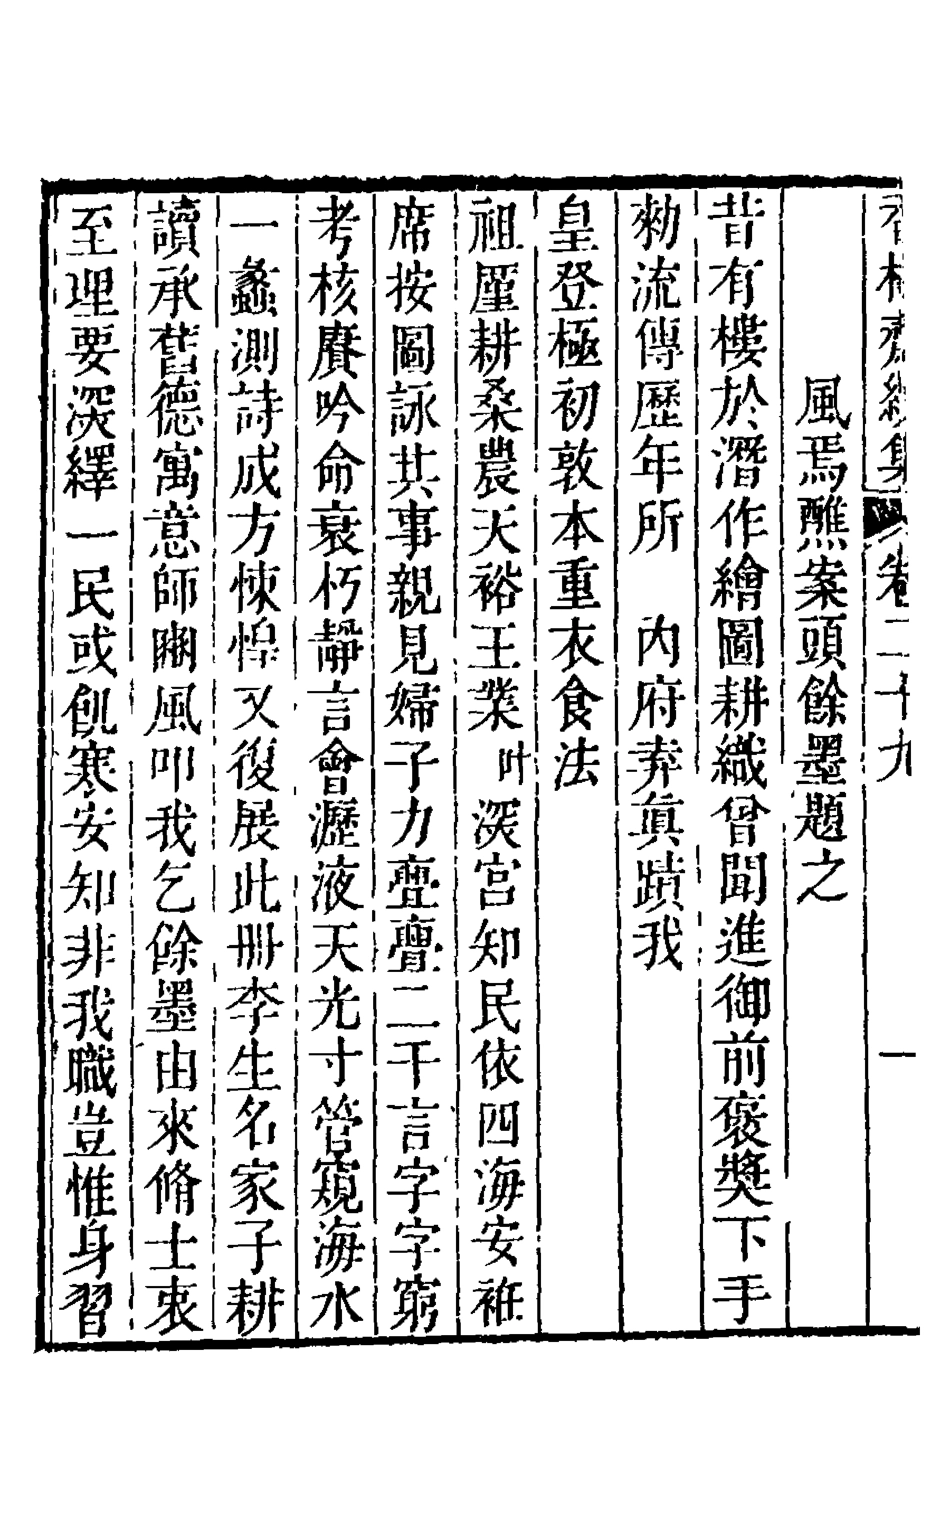 香樹齋續集 卷二十九 一
風焉醮案頭餘墨題之
昔有樓於潛作繪圖耕織曾聞進御前褒獎下手
勅流傳歷年所　內府弆眞蹟我
皇登極初敦本重衣食法
祖厪耕桑農天裕王業叶深宮知民依四海安袵
席按圖詠其事親見婦子力亹亹二千言字字窮
考核賡吟命衰朽靜言會瀝液天光寸管窺海水
一蠡測詩成方悚惶又復展此冊李生名家子耕
讀承舊德寓意師豳風叩我乞餘墨由來脩士衷
至理要深繹一民或飢寒安知非我職豈惟身習